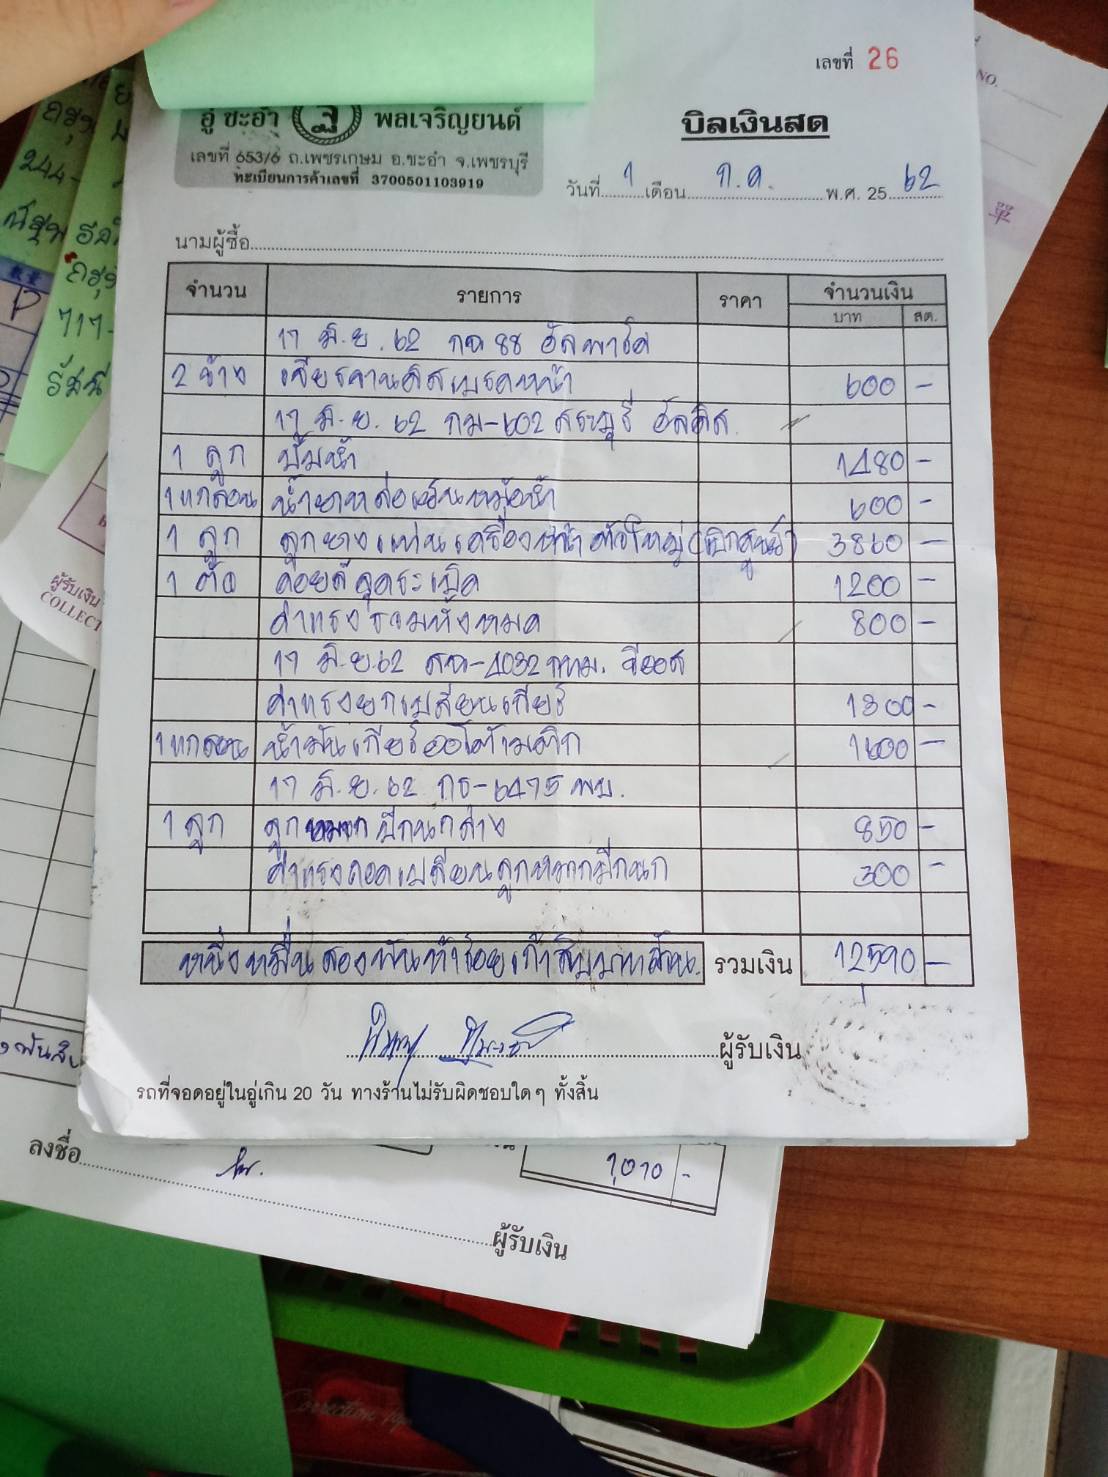 เลขที่ 26
อู่ ชะอำ พลเจริญยนต์
บิลเงินสด
เลขที่ 653/6 ถ.เพชรเกษม อ.ชะอำ จ.เพชรบุรี
ทะเบียนการค้าเลขที่ 3700501103919
วันที่ 1 เดือน ก.ค. พ.ศ. 25 62
นามผู้ซื้อ
จำนวน รายการ ราคา จำนวนเงิน
บาท สต.
17 มิ.ย. 62 กจ 88 อัลพาร์ด
2 ข้าง เจียรจานดิสเบรคหน้า 600 -
17 มิ.ย. 62 กม-602 สระบุรี อัลติส
1 ลูก ปั๊มน้ำ 1480 -
1 แกลลอน น้ำยาหล่อเย็นหม้อน้ำ 600 -
1 ลูก ลูกยางแท่นเครื่องหน้า ตัวใหญ่ (เบิกศูนย์) 3860 -
1 ตัว คอยล์จุดระเบิด 1200 -
ค่าแรงรวมทั้งหมด 800 -
17 มิ.ย. 62 4032 กทม. วีออส
ค่าแรงยกเปลี่ยนเกียร์ 1300 -
1 แกลลอน น้ำมันเกียร์ออโต้เมติก 1600 -
17 มิ.ย. 62 กธ-6475 พบ.
1 ลูก ลูกหมากปีกนกล่าง 850 -
ค่าแรงถอดเปลี่ยนลูกหมากปีกนก 300 -
หนึ่งหมื่นสองพันห้าร้อยเก้าสิบบาทถ้วน. รวมเงิน 12590 -
ผู้รับเงิน
รถที่จอดอยู่ในอู่เกิน 20 วัน ทางร้านไม่รับผิดชอบใดๆ ทั้งสิ้น
ลงชื่อ
1,010 -
ผู้รับเงิน
NO.
單
ผู้รับเงิน
COLLECT
244-
717-